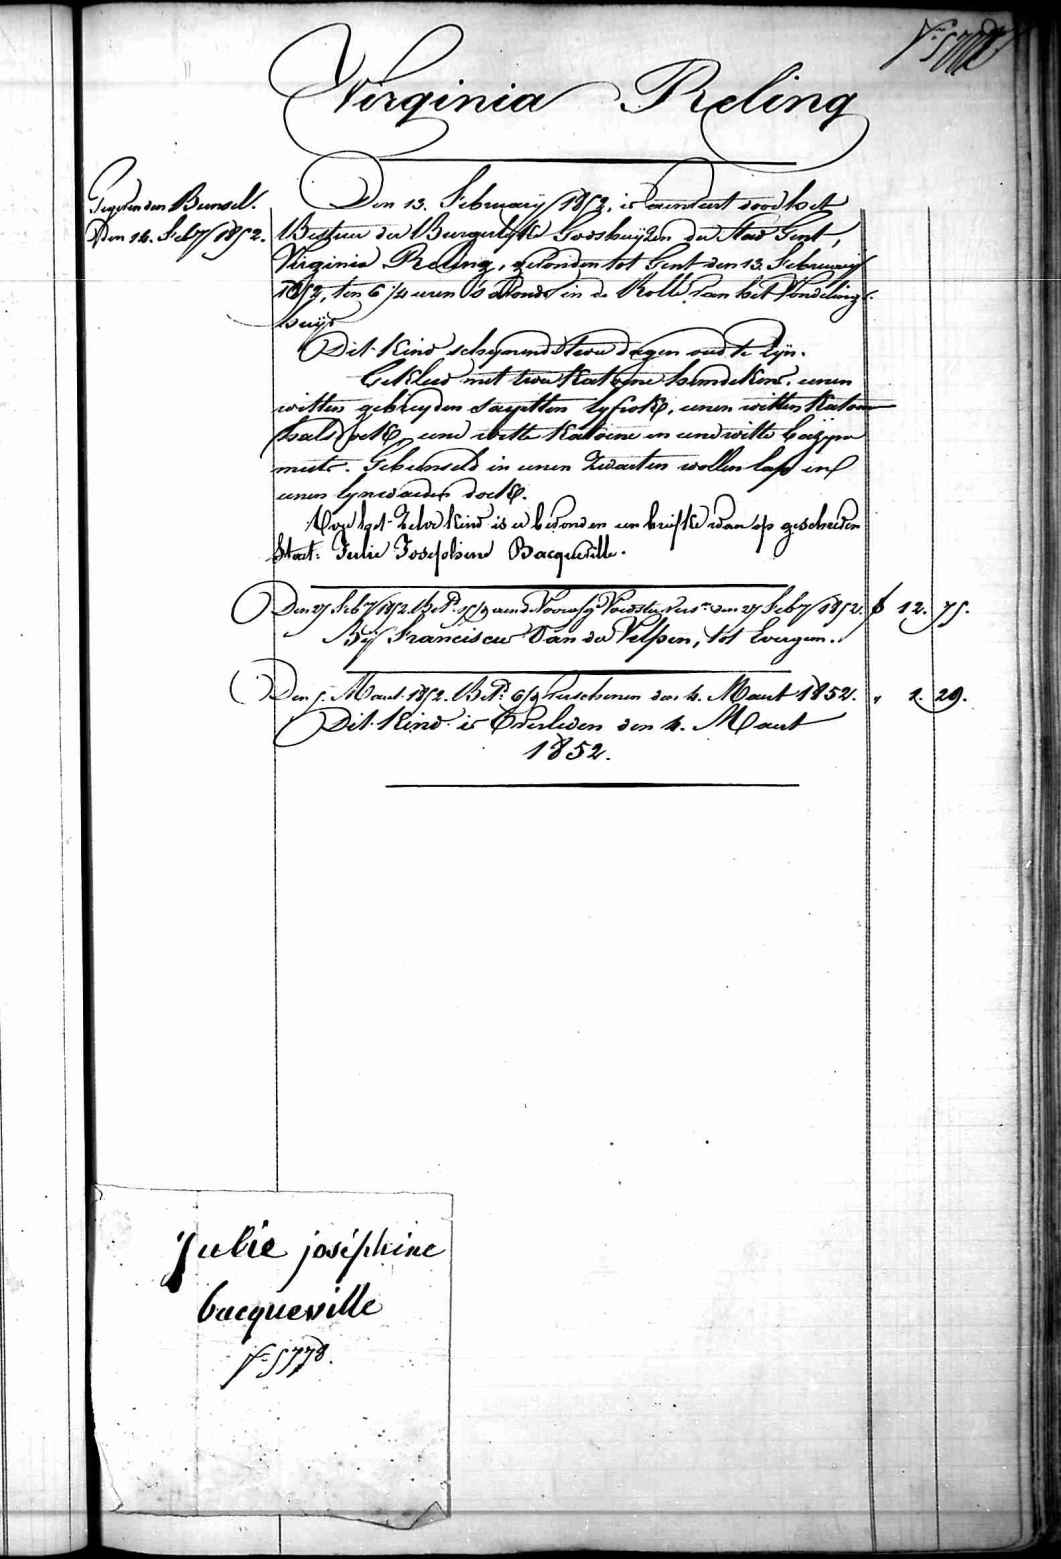 Virginia Reling
Den 14. Feb.ry 1852.
Den 13. February 1852, is aenveert door het
Bestier der Burgerlyke Godshuyzen der Stad Gent,
Virginia Reling, gevonden tot Gent den 13. February
1852, ten 6 1/4 uren 's avonds in de Rolle van het Vondeling-
huys
Dit Kind schynende twee dagen oud te zyn.
Gekleed met twee Katoene hemdekens, eenen
witten gebreyden sayetten lyfrok, eenen witten Katoene
halsdoek, eene witte Katoene en eene witte
muts. Gebunseld in eenen zwarten wollen lap en
eenen lynwaeden doek.
Op het zelve Kind is er bevonden een briefke waer op geschreven
Staet: Julie Josephine Bacqueville.
Den 27 Feb.ry 1852. Bet. den 27 Feb.ry 1852. f 12. 75.
By Francisca Van der Velpen, tot Evergem.
Den 5. Maert 1852. Bet. 6/9 verschenen den 4. Maert 1852. " 2. 29.
Dit Kind is Overleden den 4. Maert
1852.
Julie joséphine
bacqueville
N.º 5778.